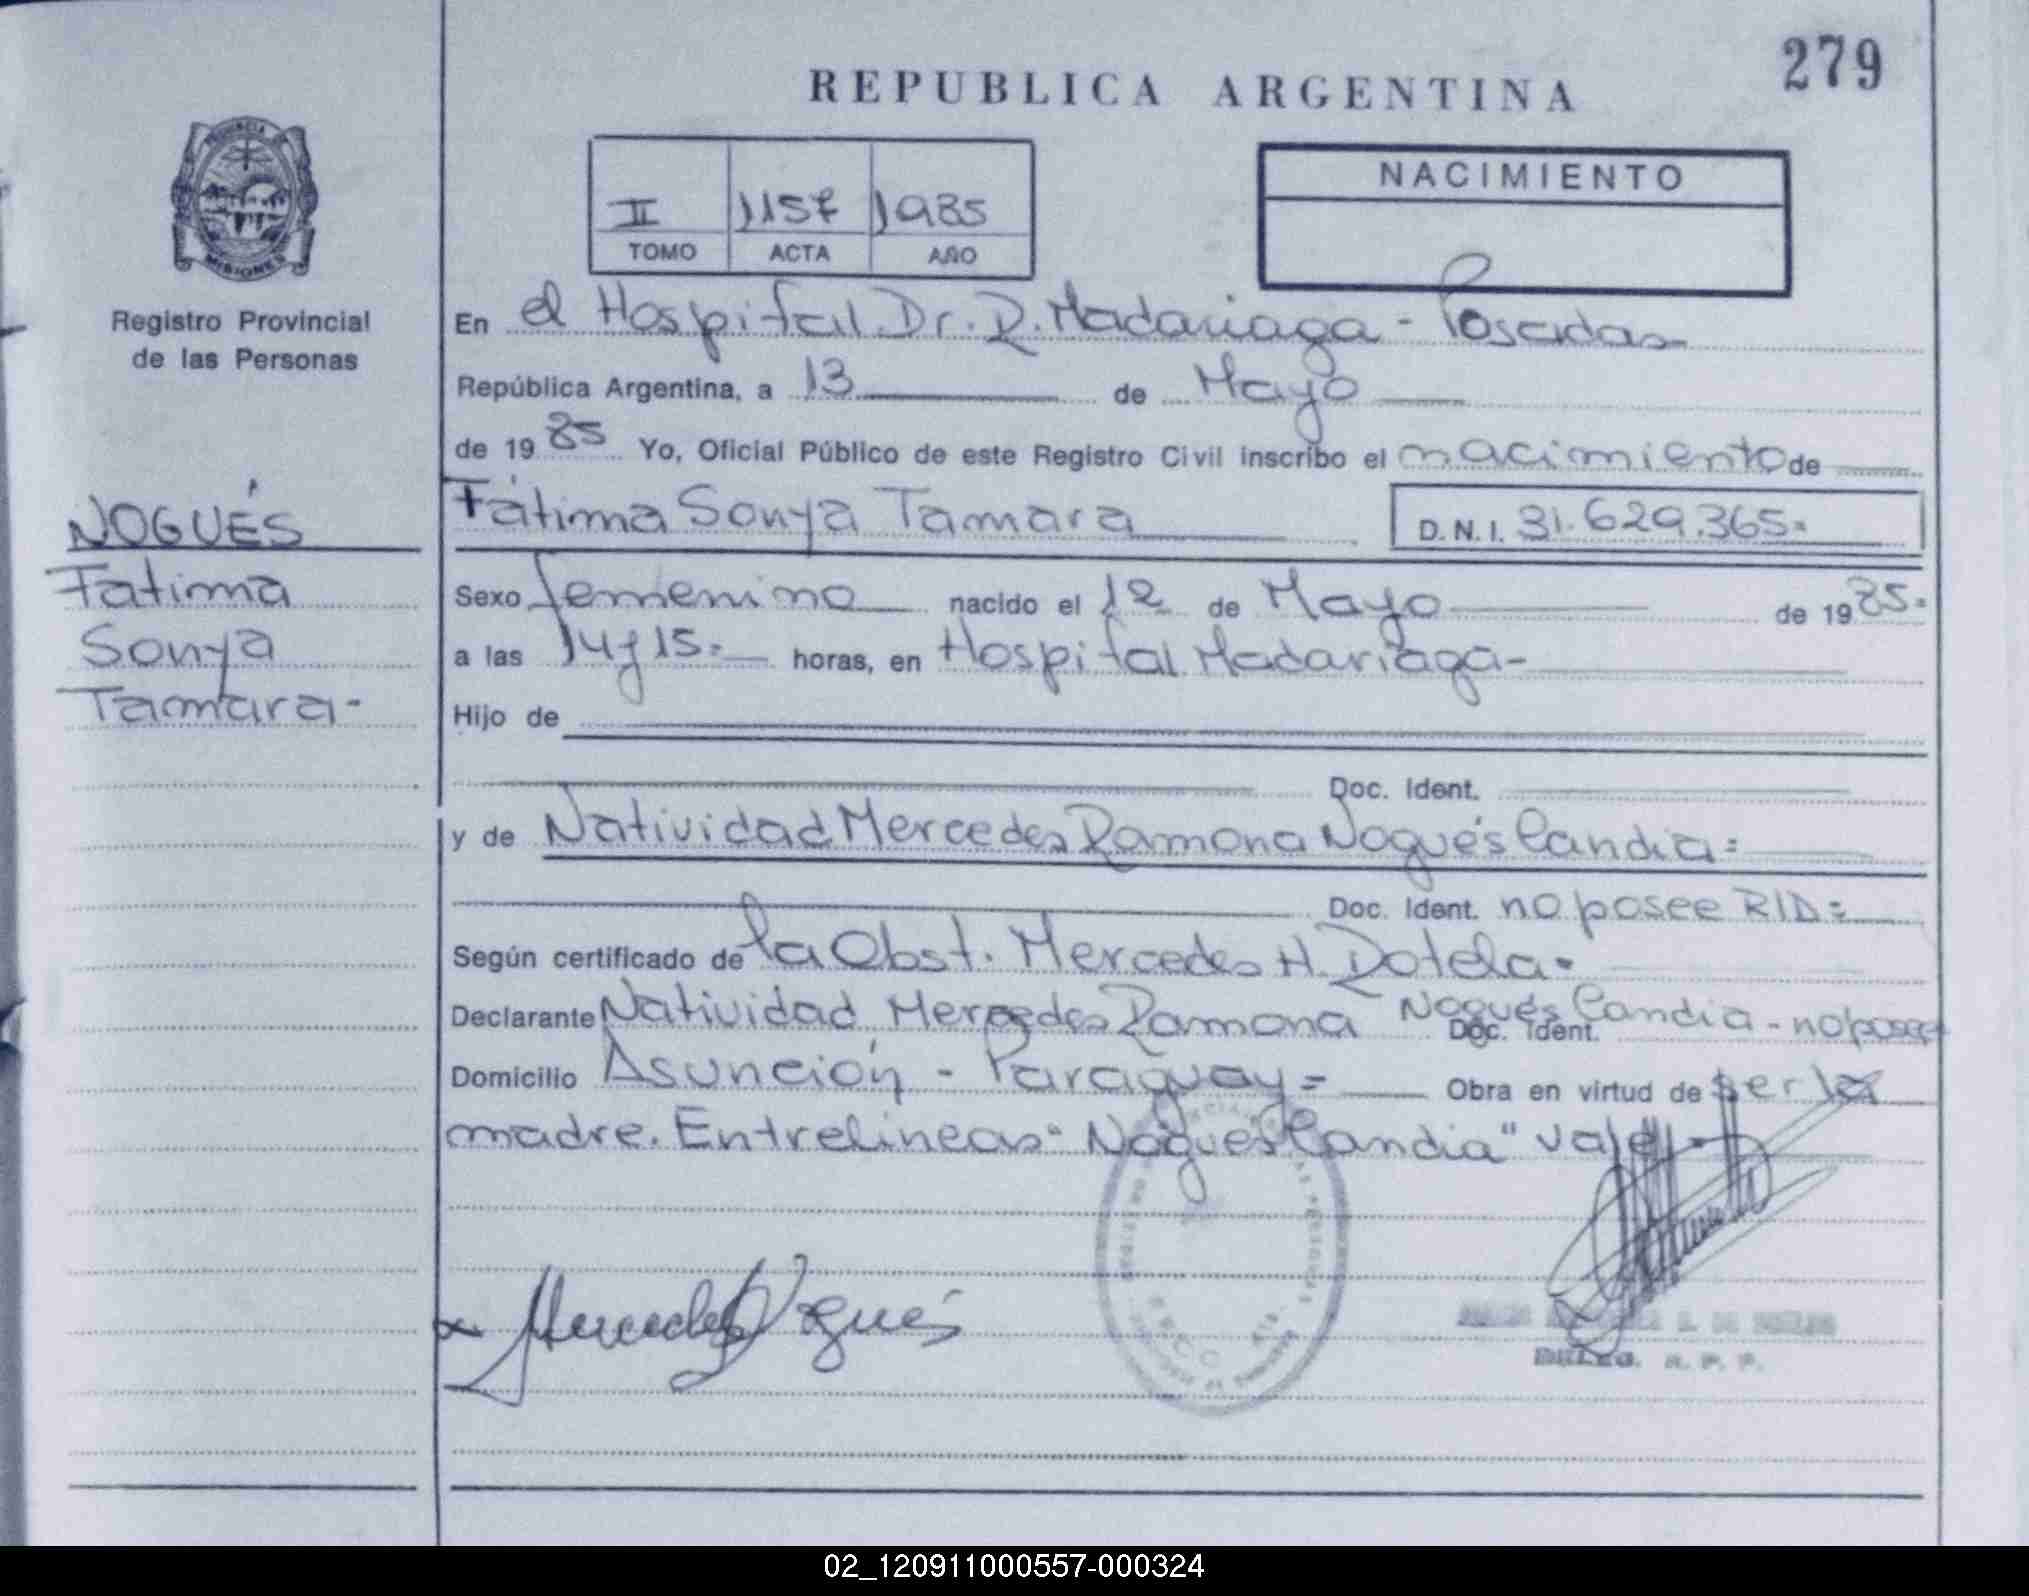 279
REPUBLICA ARGENTINA
PROVINCIA DE
MISIONES
Registro Provincial
de las Personas
II 1157 1985
TOMO ACTA AÑO
NACIMIENTO
En el Hospital Dr. R. Madariaga - Posadas
República Argentina, a 13 de Mayo
de 1985 Yo, Oficial Público de este Registro Civil inscribo el nacimiento de
Fátima Sonya Tamara D.N.I. 31.629.365=
NOGUÉS
Fatima
Sonya
Tamara-
Sexo femenino nacido el 12 de Mayo de 1985=
a las 14 y 15= horas, en Hospital Madariaga-
Hijo de
Doc. Ident.
y de Natividad Mercedes Ramona Nogués Candia=
Doc. Ident. no posee RID=
Según certificado de la Obst. Mercedes H. Dotela=
Declarante Natividad Mercedes Ramona Nogués Candia - no posee
Doc. Ident.
Domicilio Asunción - Paraguay= Obra en virtud de ser la
madre. Entrelineas "Nogues Candia" vale
Mercedes Nogués
DELEG. R. P. P.
02_120911000557-000324